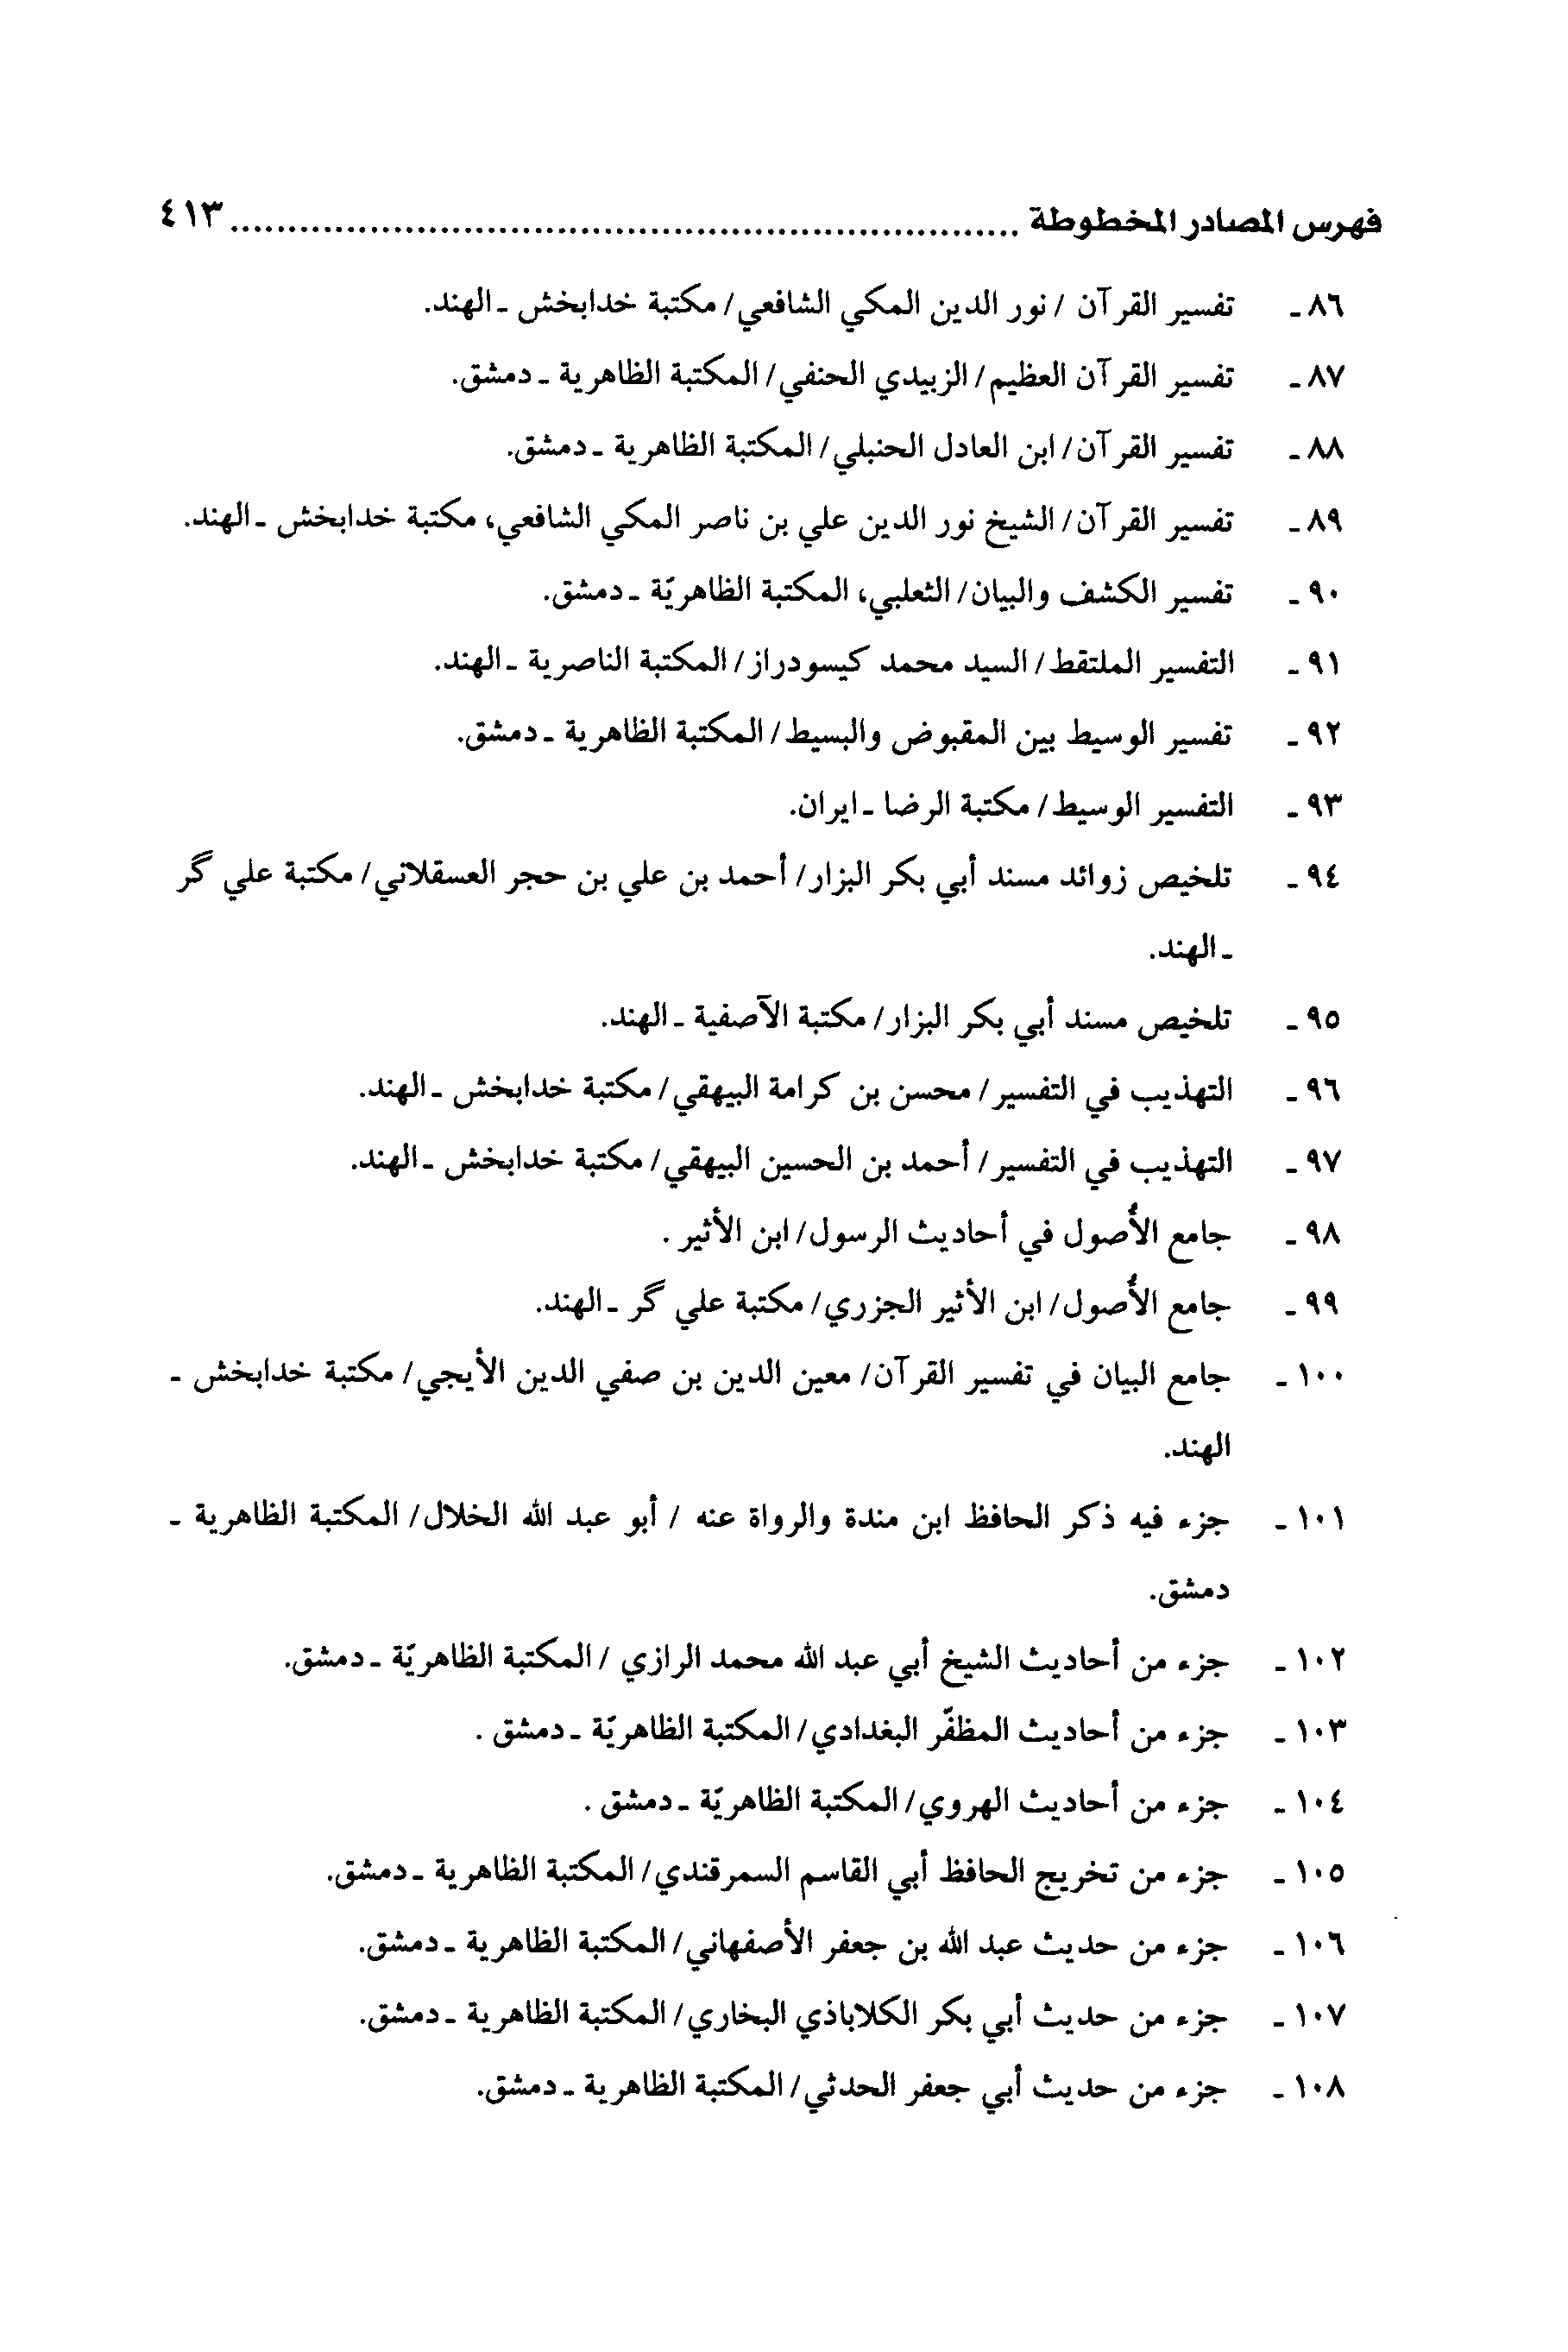 فهرس المصادر المخطوطة ................................................................ ٤١٣
٨٦ ـ تفسير القرآن / نور الدين المكي الشافعي/ مكتبة خدابخش ـ الهند.
٨٧ ـ تفسير القرآن العظيم/ الزبيدي الحنفي/ المكتبة الظاهرية ـ دمشق.
٨٨ ـ تفسير القرآن/ ابن العادل الحنبلي/ المكتبة الظاهرية ـ دمشق.
٨٩ ـ تفسير القرآن/ الشيخ نور الدين علي بن ناصر المكي الشافعي، مكتبة خدابخش ـ الهند.
٩٠ ـ تفسير الكشف والبيان/ الثعلبي، المكتبة الظاهريّة ـ دمشق.
٩١ ـ التفسير الملتقط/ السيد محمد كيسودراز/ المكتبة الناصرية ـ الهند.
٩٢ ـ تفسير الوسيط بين المقبوض والبسيط/ المكتبة الظاهرية ـ دمشق.
٩٣ ـ التفسير الوسيط/ مكتبة الرضا ـ ايران.
٩٤ ـ تلخيص زوائد مسند أبي بكر البزار/ أحمد بن علي بن حجر العسقلاني/ مكتبة علي گر
ـ الهند.
٩٥ ـ تلخيص مسند أبي بكر البزار/ مكتبة الآصفية ـ الهند.
٩٦ ـ التهذيب في التفسير/ محسن بن كرامة البيهقي/ مكتبة خدابخش ـ الهند.
٩٧ ـ التهذيب في التفسير/ أحمد بن الحسين البيهقي/ مكتبة خدابخش ـ الهند.
٩٨ ـ جامع الأُصول في أحاديث الرسول/ ابن الأثير .
٩٩ ـ جامع الأُصول/ ابن الأثير الجزري/ مكتبة علي گر ـ الهند.
١٠٠ ـ جامع البيان في تفسير القرآن/ معين الدين بن صفي الدين الأيجي/ مكتبة خدابخش ـ
الهند.
١٠١ ـ جزء فيه ذكر الحافظ ابن مندة والرواة عنه / أبو عبد الله الخلال/ المكتبة الظاهرية ـ
دمشق.
١٠٢ ـ جزء من أحاديث الشيخ أبي عبد الله محمد الرازي / المكتبة الظاهريّة ـ دمشق.
١٠٣ ـ جزء من أحاديث المظفّر البغدادي/ المكتبة الظاهريّة ـ دمشق .
١٠٤ ـ جزء من أحاديث الهروي/ المكتبة الظاهريّة ـ دمشق .
١٠٥ ـ جزء من تخريج الحافظ أبي القاسم السمرقندي/ المكتبة الظاهرية ـ دمشق.
١٠٦ ـ جزء من حديث عبد الله بن جعفر الأصفهاني/ المكتبة الظاهرية ـ دمشق.
١٠٧ ـ جزء من حديث أبي بكر الكلاباذي البخاري/ المكتبة الظاهرية ـ دمشق.
١٠٨ ـ جزء من حديث أبي جعفر الحدثي/ المكتبة الظاهرية ـ دمشق.